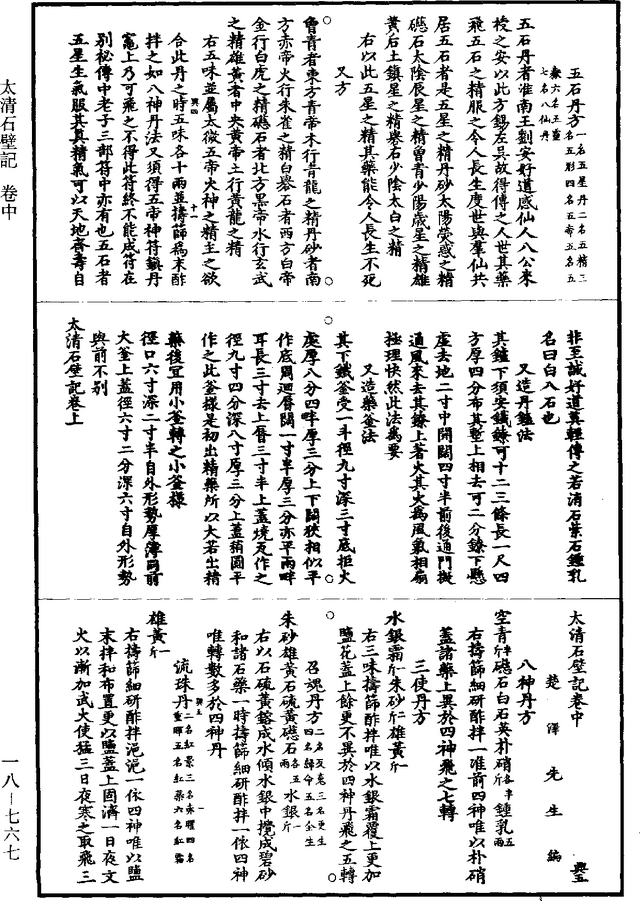 五石丹方一名五星丹二名五精三名五彩四名五帝五名五岳六名五靈七名八仙丹
五石丹者淮南王劉安好道感仙人八公來
授之安以此方錫左吳故得傳之人世其藥
飛五石之精服之令人長生度世與羣仙共
居五石者是五星之精丹砂太陽熒惑之精
磁石太陰辰星之精曾青少陽歲星之精雄
黃后土鎮星之精礜石少陰太白之精
右以此五星之精其藥能令人長生不死
又方
曾青者東方青帝木行青龍之精丹砂者南
方赤帝火行朱雀之精白礜石者西方白帝
金行白虎之精磁石者北方黑帝水行玄武
之精雄黃者中央黃帝土行黃龍之精
右五味並屬太微五帝火神之精主之欲
合此丹之時五味各十兩並擣篩爲末酢
拌之如八神丹法又須得五帝神符鎮丹
竈上乃可飛之不得此符終不能成符在
別秘傳中老子三部符中亦有也五石者
五星生氣服其真精氣可以天地齊壽自
非至誠好道莫輕傳之若消石紫石鍾乳
名曰白八石也
又造丹鑪法
其鑪下須安鐵鐐可十二三條長一尺四
方厚四分布其塹上相去可二分鐐下懸
虛去地二寸中開闊四寸半前後通門擬
通風來去其鐐上著火其火爲風氣相扇
極理快然此法爲要
又造藥釜法
其下鐵釜受一斗徑九寸深三寸底拒火
處厚八分四畔厚三分上下闊狹相似平
作底周迴脣闊一寸半厚三分亦平兩畔
耳長三寸去上脣三寸半上蓋燒瓦作之
徑九寸四分深八寸厚三分上蓋稍圓平
作之此釜樣是初出精藥所以大若出精
藥後宜用小釜轉之小釜樣
徑口六寸深二寸半自外形勢厚薄同前
大釜上蓋徑六寸二分深六寸自外形勢
與前不別
太清石壁記卷上
太清石壁記卷中 興五
楚澤先生編
八神丹方
空青半斤磁石白石英朴硝各半斤鍾乳五兩
右擣篩細研酢拌一准前四神唯以朴硝
蓋諸藥上異於四神飛之七轉
三使丹方
水銀霜一斤朱砂一斤雄黃一斤
右三味擣篩酢拌唯以水銀霜覆上更加
鹽花蓋上餘更不異於四神丹飛之五轉
召魂丹方二名反魂三名更生四名歸命五名全生
朱砂雄黃石硫黃磁石各五兩水銀一斤
右以石硫黃鎔成水傾水銀中攪成碧砂
和諸石藥一時擣篩細研酢拌一依四神
唯轉數多於四神丹
流珠丹二名紅景三名赤曜四名重暉五名紅藥六名紅霜
雄黃一斤
右擣篩細研酢拌浥浥一依四神唯以鹽
末拌和布置更以鹽蓋上固濟一日夜文
火以漸加武火使猛三日夜寒之取飛三
太清石壁記 卷中
一八—七六七